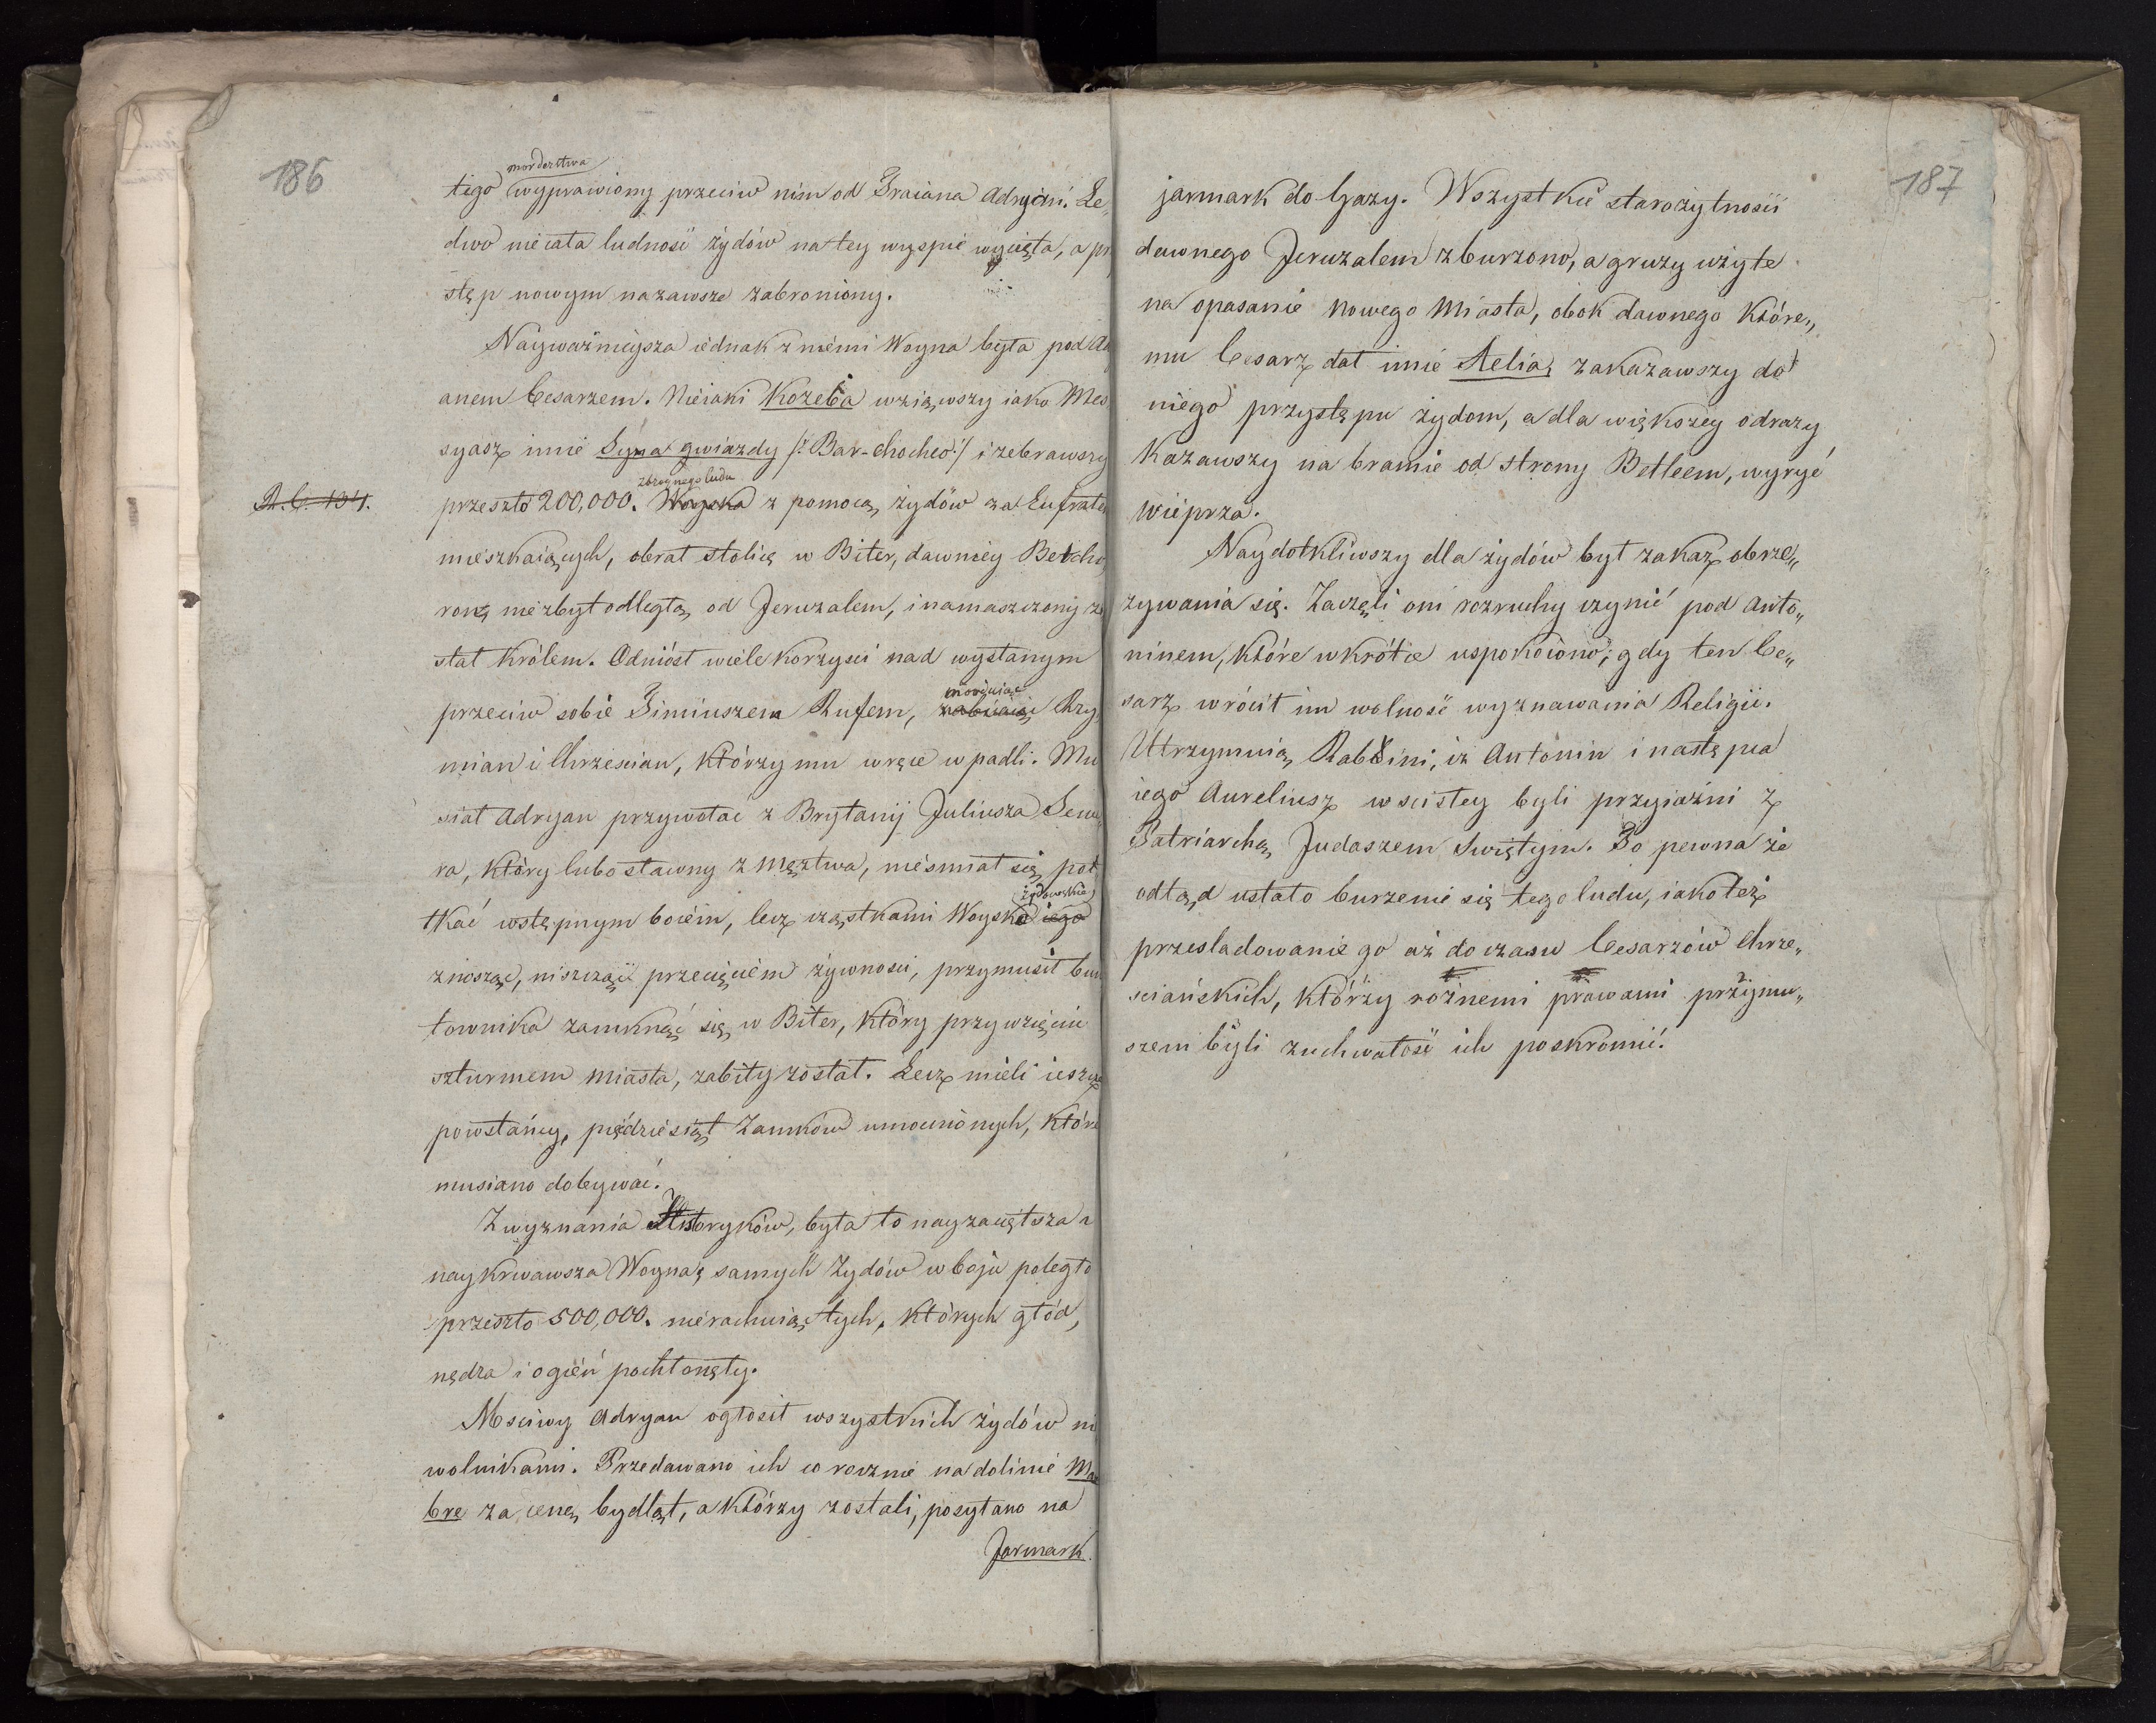 186
morderstwa
tego wyprawiony przeciw nim od Traiana Adryan. Le„
dwo nie cała ludność żydów na tey wyspie wycięta, a p
stęp nowym na zawsze zabroniony.
Nayważnieysza iednak z niemi Woyna była pod A
anem Cesarzem. Nieiaki Kozeba wziąwszy iako Mes
syasz imie Syna gwiazdy /: Bar-Chocheb :/ i zebrawszy
zbroynego ludu
R. C. 134. przeszło 200,000. Woyska z pomocą żydów za Eufrate
mieszkaiących, obrał stolicę w Biter, dawniey Betcho
roną nie zbyt odległą od Jeruzalem, i namaszczony zo
stał Królem. Odniósł wiele korzyści nad wysłanym
morduiąc
przeciw sobie Timiuszem Rufem, zabiiaiąc Rzy
mian i Chrzescian, którzy mu w ręce wpadli. Mu
siał Adryan przywołać z Brytanij Juliusza Sewe
ra, który lubo sławny z męztwa, nieśmiał się pot
żydowskie
tkać wstępnym boiem, lecz cząstkami Woyska iego
znosząc, niszcząc przecięciem żywnosci, przymusił bun
townika zamknąć się w Biter, który przy wzięciu
szturmem miasta, zabity został. Lecz mieli ieszcze
powstańcy, pięćdziesiąt Zamków umocnionych, które
musiano dobywać.
Z wyznania Historyków, była to nayzaciętsza i
naykrwawsza Woyna; samych Żydów w boju poległo
przeszło 500,000. nierachuiąc tych, których głód,
nędza i ogień pochłonęły.
Mściwy Adryan ogłosił wszystkich żydów nie
wolnikami. Przedawano ich co rocznie na dolinie Mam
bre za cenę bydląt, a którzy zostali, posyłano na
Jarmark.
187
jarmark do Gazy. Wszystkie starożytnosci
dawnego Jeruzalem zburzono, a gruzy użyte
na opasanie nowego Miasta, obok dawnego które„
mu Cesarz dał imie Aelia, zakazawszy do
niego przystępu żydom, a dla większey odrazy
Kazawszy na bramie od strony Betleem, wyryć
wieprza.
Naydotkliwszy dla żydów był zakaz obrze„
zywania się. Zaczęli oni rozruchy czynić pod Anto„
ninem, które wkrótce uspokoiono; gdy ten Ce„
sarz wrócił im wolność wyznawania Religii.
Utrzymuią Rabbini, iż Antonin i następca
iego Aureliusz w scisłey byli przyiazni z
Patriarchą Judaszem Swiętym. To pewna że
odtąd ustało burzenie się tego ludu, iako też
przesladowanie go aż do czasu Cesarzów Chrze„
sciańskich, którzy rożnemi prawami przymu„
szeni byli zuchwałość ich poskromić.